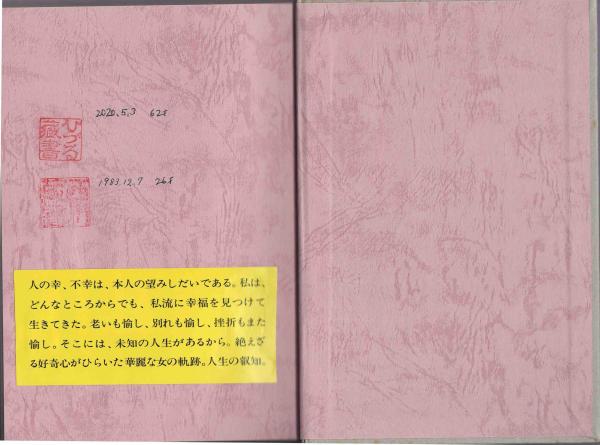 2020.5.3 62才
ひづる
蔵書
1983.12.7 26才
人の幸、不幸は、本人の望みしだいである。私は、
どんなところからでも、私流に幸福を見つけて
生きてきた。老いも愉し、別れも愉し、挫折もまた
愉し。そこには、未知の人生があるから。絶えざ
る好奇心がひらいた華麗な女の軌跡。人生の叡知。